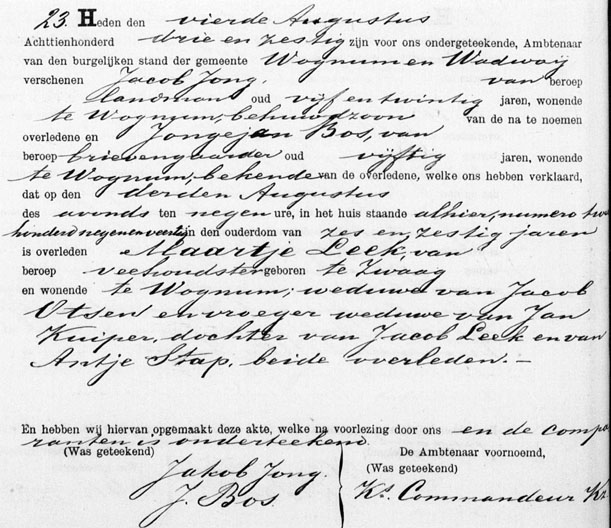 23. Heden den vierde Augustus
Achttienhonderd drie en zestig zijn voor ons ondergeteekende, Ambtenaar
van den burgelijken stand der gemeente Wognum en Wadway
verschenen Jacob Jong. van beroep
landman oud vijf en twintig jaren, wonende
te Wognum, behuwdzoon van de na te noemen
overledene en Jongejan Bos, van
beroep brievengaarder oud vijftig jaren, wonende
te Wognum, bekende van de overledene, welke ons hebben verklaard,
dat op den derden Augustus
des avonds ten negen ure, in het huis staande alhier, numero twee
honderd negen en veertig in den ouderdom van zes en zestig jaren
is overleden Maartje Leek, van
beroep veehoudster geboren te Zwaag
en wonende te Wognum; weduwe van Jacob
Otsen en vroeger weduwe van Jan
Kuiper, dochter van Jacob Leek en van
Antje Stap, beide overleden. —
En hebben wij hiervan opgemaakt deze akte, welke na voorlezing door ons en de compa
ranten is onderteekend.
(Was geteekend) De Ambtenaar voornoemd,
Jakob Jong. (Was geteekend)
J. Bos. Ks. Commandeur Kz.